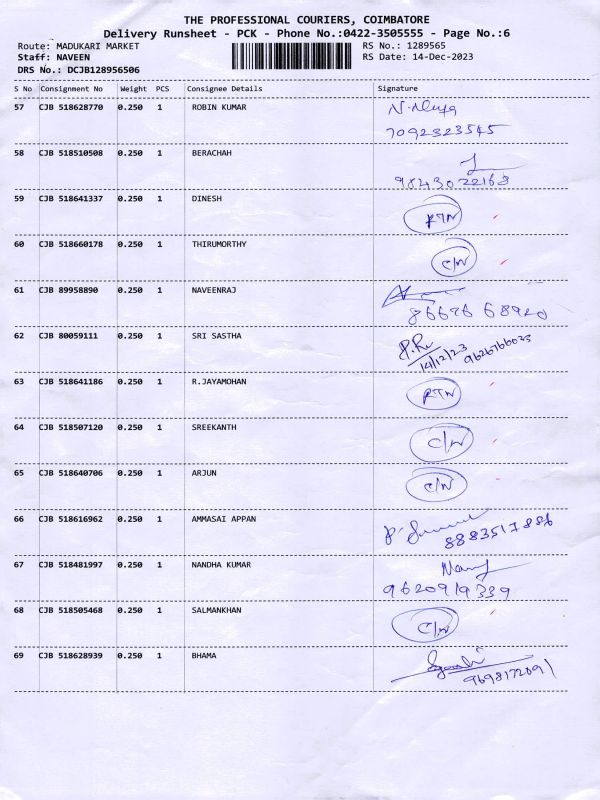 THE PROFESSIONAL COURIERS, COIMBATORE
Delivery Runsheet - PCK - Phone No.:0422-3505555 - Page No.:6
Route: MADUKARI MARKET
RS No.: 1289565
Staff: NAVEEN
RS Date: 14-Dec-2023
DRS No.: DCJB128956506
S No Consignment No Weight PCS Consignee Details Signature
57 CJB 518628770 0.250 1 ROBIN KUMAR
7092323545
58 CJB 518510508 0.250 1 BERACHAH
9843022163
59 CJB 518641337 0.250 1 DINESH
RTN
60 CJB 518660178 0.250 1 THIRUMORTHY
C/N
61 CJB 89958890 0.250 1 NAVEENRAJ
86676 68920
62 CJB 80059111 0.250 1 SRI SASTHA
14/12/23 9626766023
63 CJB 518641186 0.250 1 R.JAYAMOHAN
RTN
64 CJB 518507120 0.250 1 SREEKANTH
C/N
65 CJB 518640706 0.250 1 ARJUN
C/N
66 CJB 518616962 0.250 1 AMMASAI APPAN
8883517856
67 CJB 518481997 0.250 1 NANDHA KUMAR
9620919339
68 CJB 518505468 0.250 1 SALMANKHAN
C/N
69 CJB 518628939 0.250 1 BHAMA
9698172091